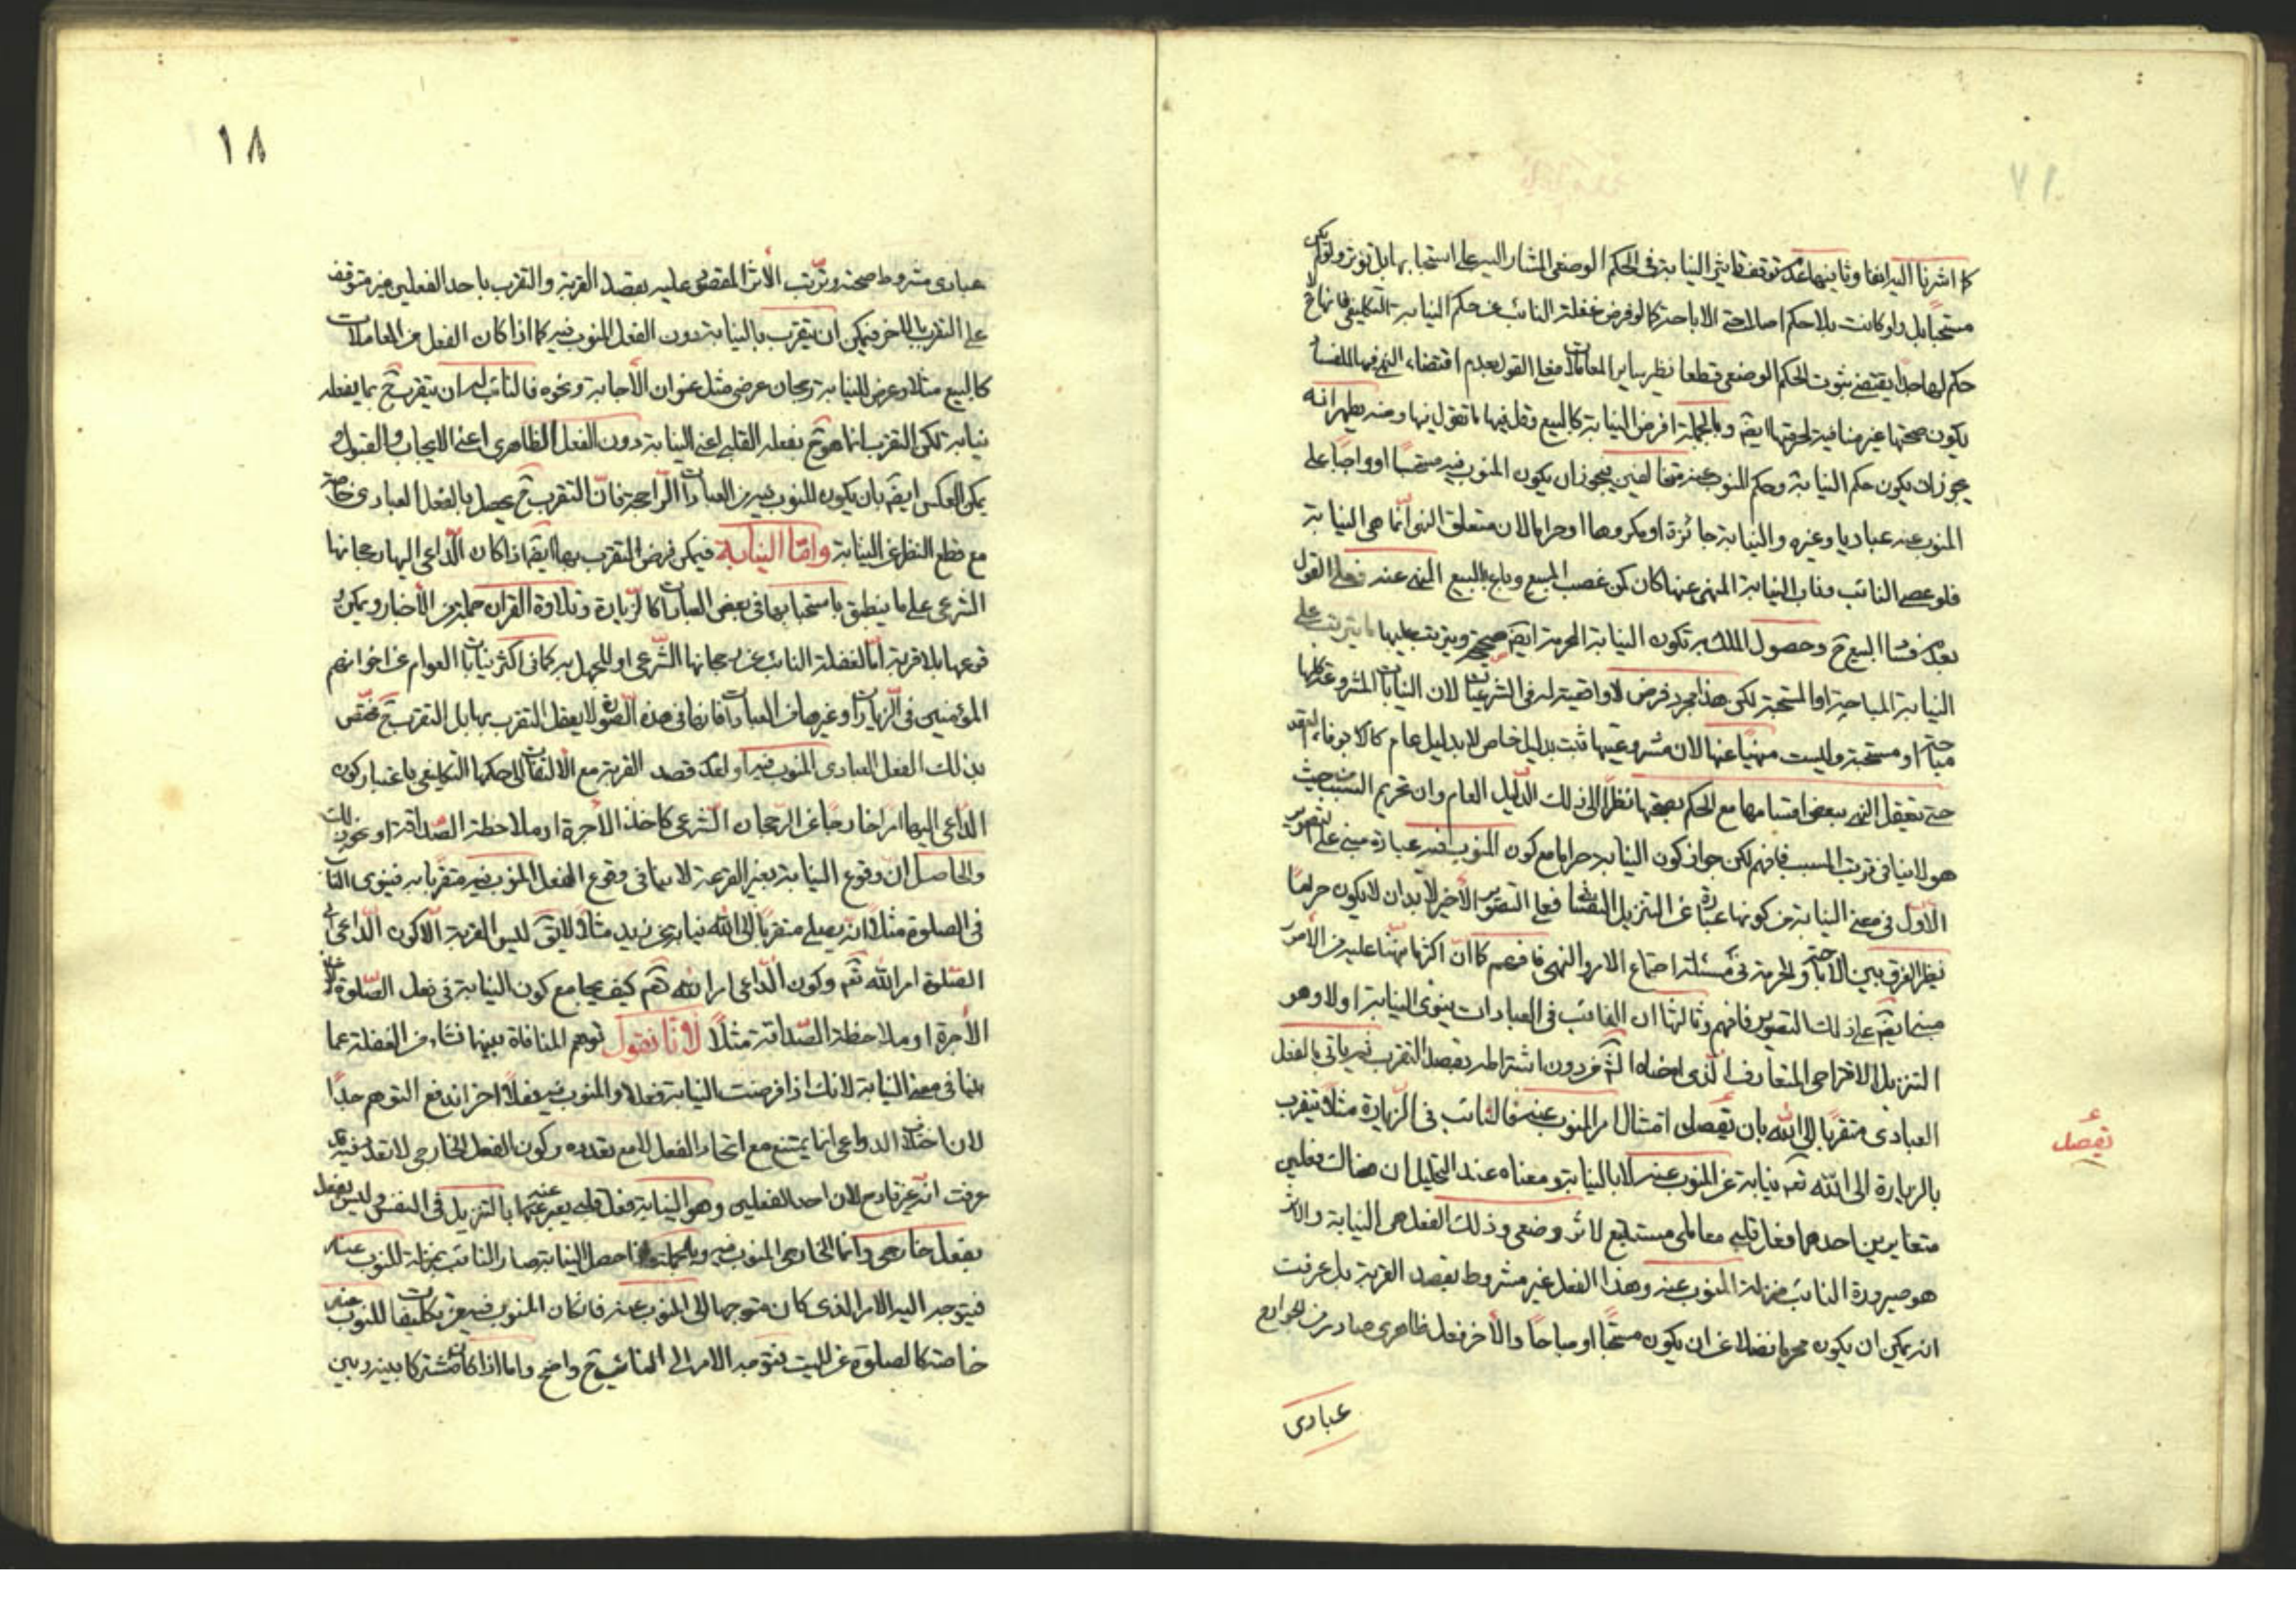 كما اشرنا اليه ايضا وثانيها عدم توقف تاثير النيابة فى الحكم الوضعى المشار اليه على استحبابها بل تؤثر ولو لم يكن
مستحبا بل ولو كانت بلا حكم اصلا حتى الاباحة كما لو فرض غفلة النائب عن حكم النيابة التكليفى فانها ح لا
حكم لها جدا يقتضى ثبوت الحكم الوضعى قطعا نظير ساير المعاملات فعلى القول بعدم اقتضاء النهى فيها للفساد
يكون صحتها غير منافية لحرمتها ايضا وبالجملة افرض النيابة كالبيع وقل فيها ما تقول فيها ومنه يظهر انه
يجوز ان يكون حكم النيابة وحكم المنوب عنه متخالفين فيجوز ان يكون المنوب فيه مستحبا او واجبا على
المنوب عنه عباديا وغيره والنيابة جائزة او مكروها او حراما لان متعلق النهى انما هى النيابة
فلو عصى النائب وناب النيابة المنهى عنها كان كمن غصب المبيع وباع بالبيع المنهى عنه فعلى القول
بعدم فساد البيع ح وحصول الملك به تكون النيابة المحرمة ايضا صحيحة ويترتب عليها ما يترتب على
النيابة المباحة او المستحبة لكن هذا مجرد فرض لا واقعية له فى الشرعيات لان النيابات المشروعة كلها
مباحة او مستحبة وليست منهيا عنها لان مشروعيتها ثبت بدليل خاص لا بدليل عام كالاوفوا بالعقود
حتى يتعقل النهى ببعض اقسامها مع الحكم بصحتها نظرا الى ذلك الدليل العام وان تحريم السبب من حيث
هو لا ينافى ترتب المسبب فافهم لكن جواز كون النيابة حراما مع كون المنوب فيه عبادة مبنى على التصوير
الاول فى معنى النيابة من كونها عبارة عن التنزيل النفسانى فعلى التصوير الاخير لا بد ان لا يكون حراما
نظرا لفرق بين الاباحة والحرمة فى مسئلة اجتماع الامر والنهى فافهم كما ان اكثر ما نبهنا عليه من الامور
مبنى ايضا على ذلك التصوير فافهم وثالثها ان النائب فى العبادات ينوى النيابة اولا وهو
التنزيل الاقتراحى المتعارف الذى اوضحناه لك من دون اشتراطه بقصد التقرب ثم ياتى بالفعل
العبادى متقربا الى الله بان يقصد امتثال امر المنوب عنه فالنائب فى الزيارة مثلا يتقرب
بالزيارة الى الله تعم نيابة عن المنوب عنه لا بالنيابة ومعناه عند التحليل ان هناك فعلين
متغايرين احدهما فعل قلبى معاملى مستتبع لاثر وضعى وذلك الفعل هى النيابة والاثر
هو صيرورة النائب بمنزلة المنوب عنه وهذا الفعل غير مشروط بقصد القربة بل عرفت
انه يمكن ان يكون محرما فضلا عن ان يكون مستحبا او مباحا والاخر فعل ظاهرى صادر من الجوارح
عبادى
١٨
عبادى مشروط صحته وترتب الأثر المقصود عليه بقصد القربة والتقرب باحد الفعلين غير متوقف
على التقرب بالاخر فيمكن ان يتقرب بالنيابة دون الفعل المنوب فيه كما اذا كان الفعل من المعاملات
كالبيع مثلا وعرض للنيابة رجحان عرضى مثل عنوان الأجابة ونحوه فالنائب له ان يتقرب ح بما يفعله
نيابة لكن التقرب انما هو ح بفعله القلبى اعنى النيابة دون الفعل الظاهرى اعنى الايجاب والقبول و
يمكن العكس ايضا بان يكون المنوب فيه من العبادات الراجحة فان التقرب ح يحصل بالفعل العبادى خاصة
مع قطع النظر عن النيابة واما النيابة فيمكن فرض التقرب بها ايضا اذا كان الداعى اليها رجحانها
الشرعى على ما ينطق باستحبابها فى بعض العبادات كالزيارة وتلاوة القران جملة من الأخبار ويمكن و
قوعها بلا قربة اما لغفلة النائب عن رجحانها الشرعى او للجهل به كما فى اكثر نيابات العوام عن اخوانهم
المؤمنين فى الزيارات او غيرها من العبادات فانها فى هذه الصورة لا يعقل التقرب بها بل التقرب ح مختص
بذلك الفعل العبادى المنوب فيه او لعدم قصد القربة مع الالتفات الى حكمها التكليفى باعتبار كون
الداعى اليها امرا خارجا عن الرجحان الشرعى كاخذ الأجرة او ملاحظة الصداقة او نحو ذلك
والحاصل ان وقوع النيابة بغير القربة لا ينافى وقوع الفعل المنوب فيه متقربا به فينوى النائب
فى الصلوة مثلا انه يصلى متقربا الى الله نيابة عن زيد مثلا لا يق ليس القربة الا كون الداعى الى
الصلوة امر الله تعم وكون الداعى امر الله تعم كيف يجامع كون النيابة فى فعل الصلوة
الأجرة او ملاحظة الصداقة مثلا لأنا نقول توهم المنافاة بينهما نشاء من الغفلة عما
بينا فى معنى النيابة لانك اذا فرضت النيابة فعلا والمنوب فيه فعلا اخر اندفع التوهم جدا
لان اختلاف الدواعى انما يمتنع مع اتحاد الفعل لا مع تعدده وكون الفعل الخارجى لا تعدد فيه قد
عرفت انه غير قادح لان احد الفعلين وهو النيابة فعل قلبى يعبر عنه بالتنزيل فى النفس وليس
بفعل خارجى وانما الخارجى المنوب فيه وبالجملة اذا حصل النيابة صار النائب بمنزلة المنوب عنه
فيتوجه اليه الامر الذى كان متوجها الى المنوب عنه فان كان المنوب فيه من تكليفات المنوب عنه
خاصة كالصلوة عن الميت فتوجه الامر الى النائب ح واضح واما اذا كان مشتركا بينه وبين